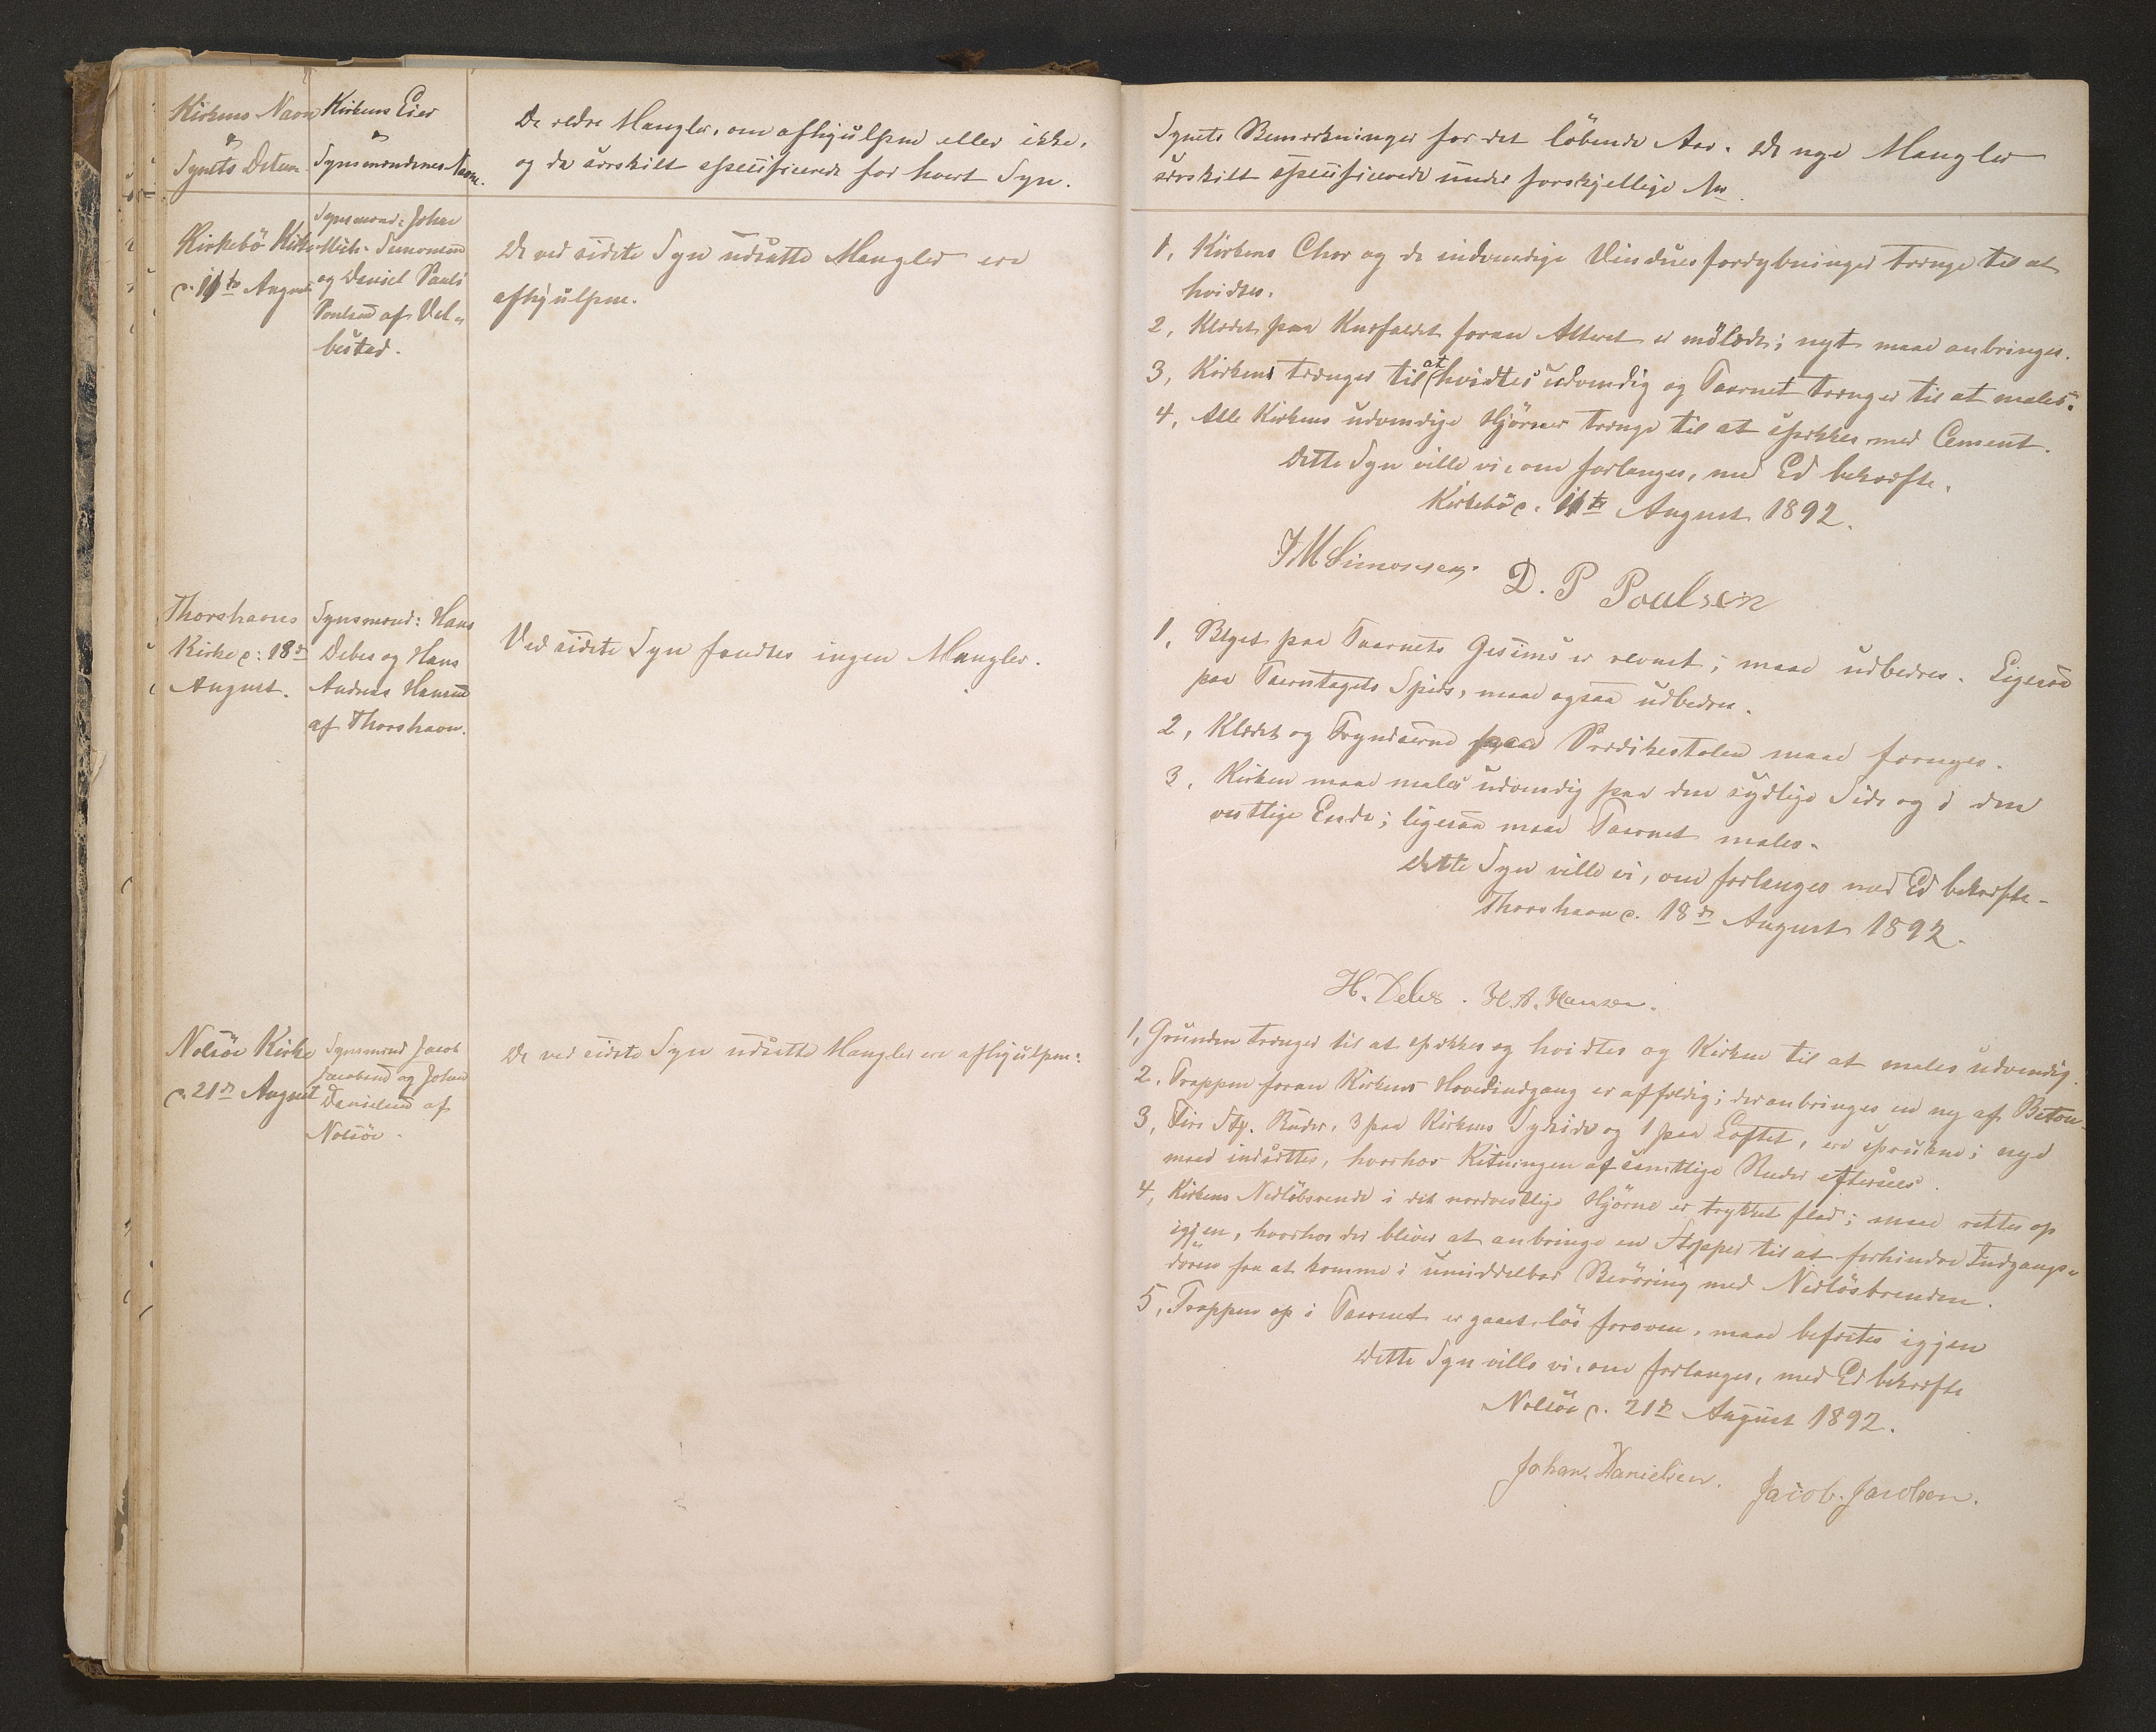 Kirkens Navn
&
Synets Datum.
Kirkens Eier
&
Synsmændenes Navne.
De ældre Mangler, om afhjulpne eller ikke,
og da særskilt specificerede for hvert Syn.
Kirkebö Kirke
d. 11te August
Synsmænd: Johan
Mich. Simonsen
og Daniel Pauli
Poulsen af Vel-
bestad.
De ved sidste Syn udsatte Mangler ere
afhjulpne.
Thorshavns
Kirke d: 18de
August.
Synsmænd: Hans
Debes og Hans
Andreas Hansen
af Thorshavn.
Ved sidste Syn fandtes ingen Mangler.
Nolsöe Kirke
d. 21de August
Synsmænd Jacob
Jacobsen og Johan
Danielsen af
Nolsöe.
De ved sidste Syn udsatte Mangler ere afhjulpne.
Synets Bemærkninger for det löbende Aar. De nye Mangler
særskilt specificerede under forskjellige Nr.
1, Kirkens Chor og de indvendige Vinduesfordybninger trænge til at
hvidtes.
2, Klædet paa Knæfaldet foran Alteret er mölædt; nyt maa anbringes.
3, Kirken trænger til at hvidtes udvendig og Taarnet trænger til at males.
4, Alle Kirkens udvendige Hjörner trænge til at spækkes med Cement.
Dette Syn ville vi, om forlanges, med Ed bekræfte.
Kirkebö d. 11te August 1892.
J M Simonsen. D. P Poulsen
1, Blyet paa Taarnets Gesims er revnet; maa udbedres. Ligesaa
paa Taarntagets Spids, maa ogsaa udbedres.
2, Klædet og Fryndserne paa Prædikestolen maa fornyes.
3, Kirken maa males udvendig paa den sydlige Side og i den
vestlige Ende; ligesaa maa Taarnet males.
Dette Syn ville vi, om forlanges med Ed bekræfte.
Thorshavn d. 18de August 1892.
H. Debes. H. A. Hansen.
1, Grunden trænger til at spækkes og hvidtes og Kirken til at males udvendig.
2, Trappen foran Kirkens Hovedindgang er affældig; der anbringes en ny af Beton.
3, Fire Stk. Ruder, 3 paa Kirkens Sydside og 1 paa Loftet, ere sprukne; nye
maa indsættes, hvorhos Kitningen af samtlige Ruder eftersees.
4, Kirkens Nedlöbsrende i det nordvestlige Hjörne er trykket flad; maa rettes op
igjen, hvorhos der bliver at anbringe en Stopper til at forhindre Indgangs-
dören fra at komme i umiddelbar Beröring med Nedlösbrenden.
5, Trappen op i Taarnet er gaaet lös foroven, maa befæstes igjen
Dette Syn ville vi, om forlanges, med Ed bekræfte
Nolsöe d. 21de August 1892.
Johan. Danielsen. Jacob. Jacobsen.